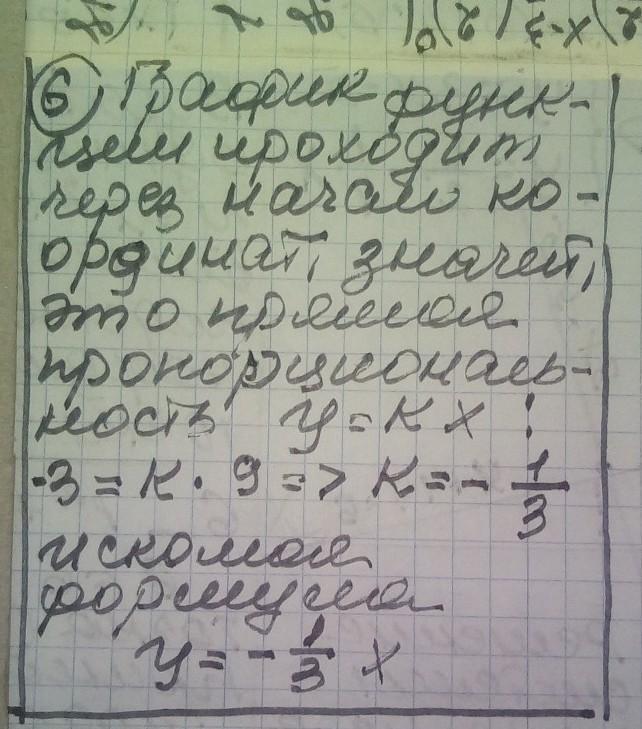 6) График функ-
ции проходит
через начало ко-
ординат, значит,
это прямая
пропорциональ-
ность y = kx !
-3 = k · 9 => k = - 1/3
искомая
формула
y = - 1/3 x